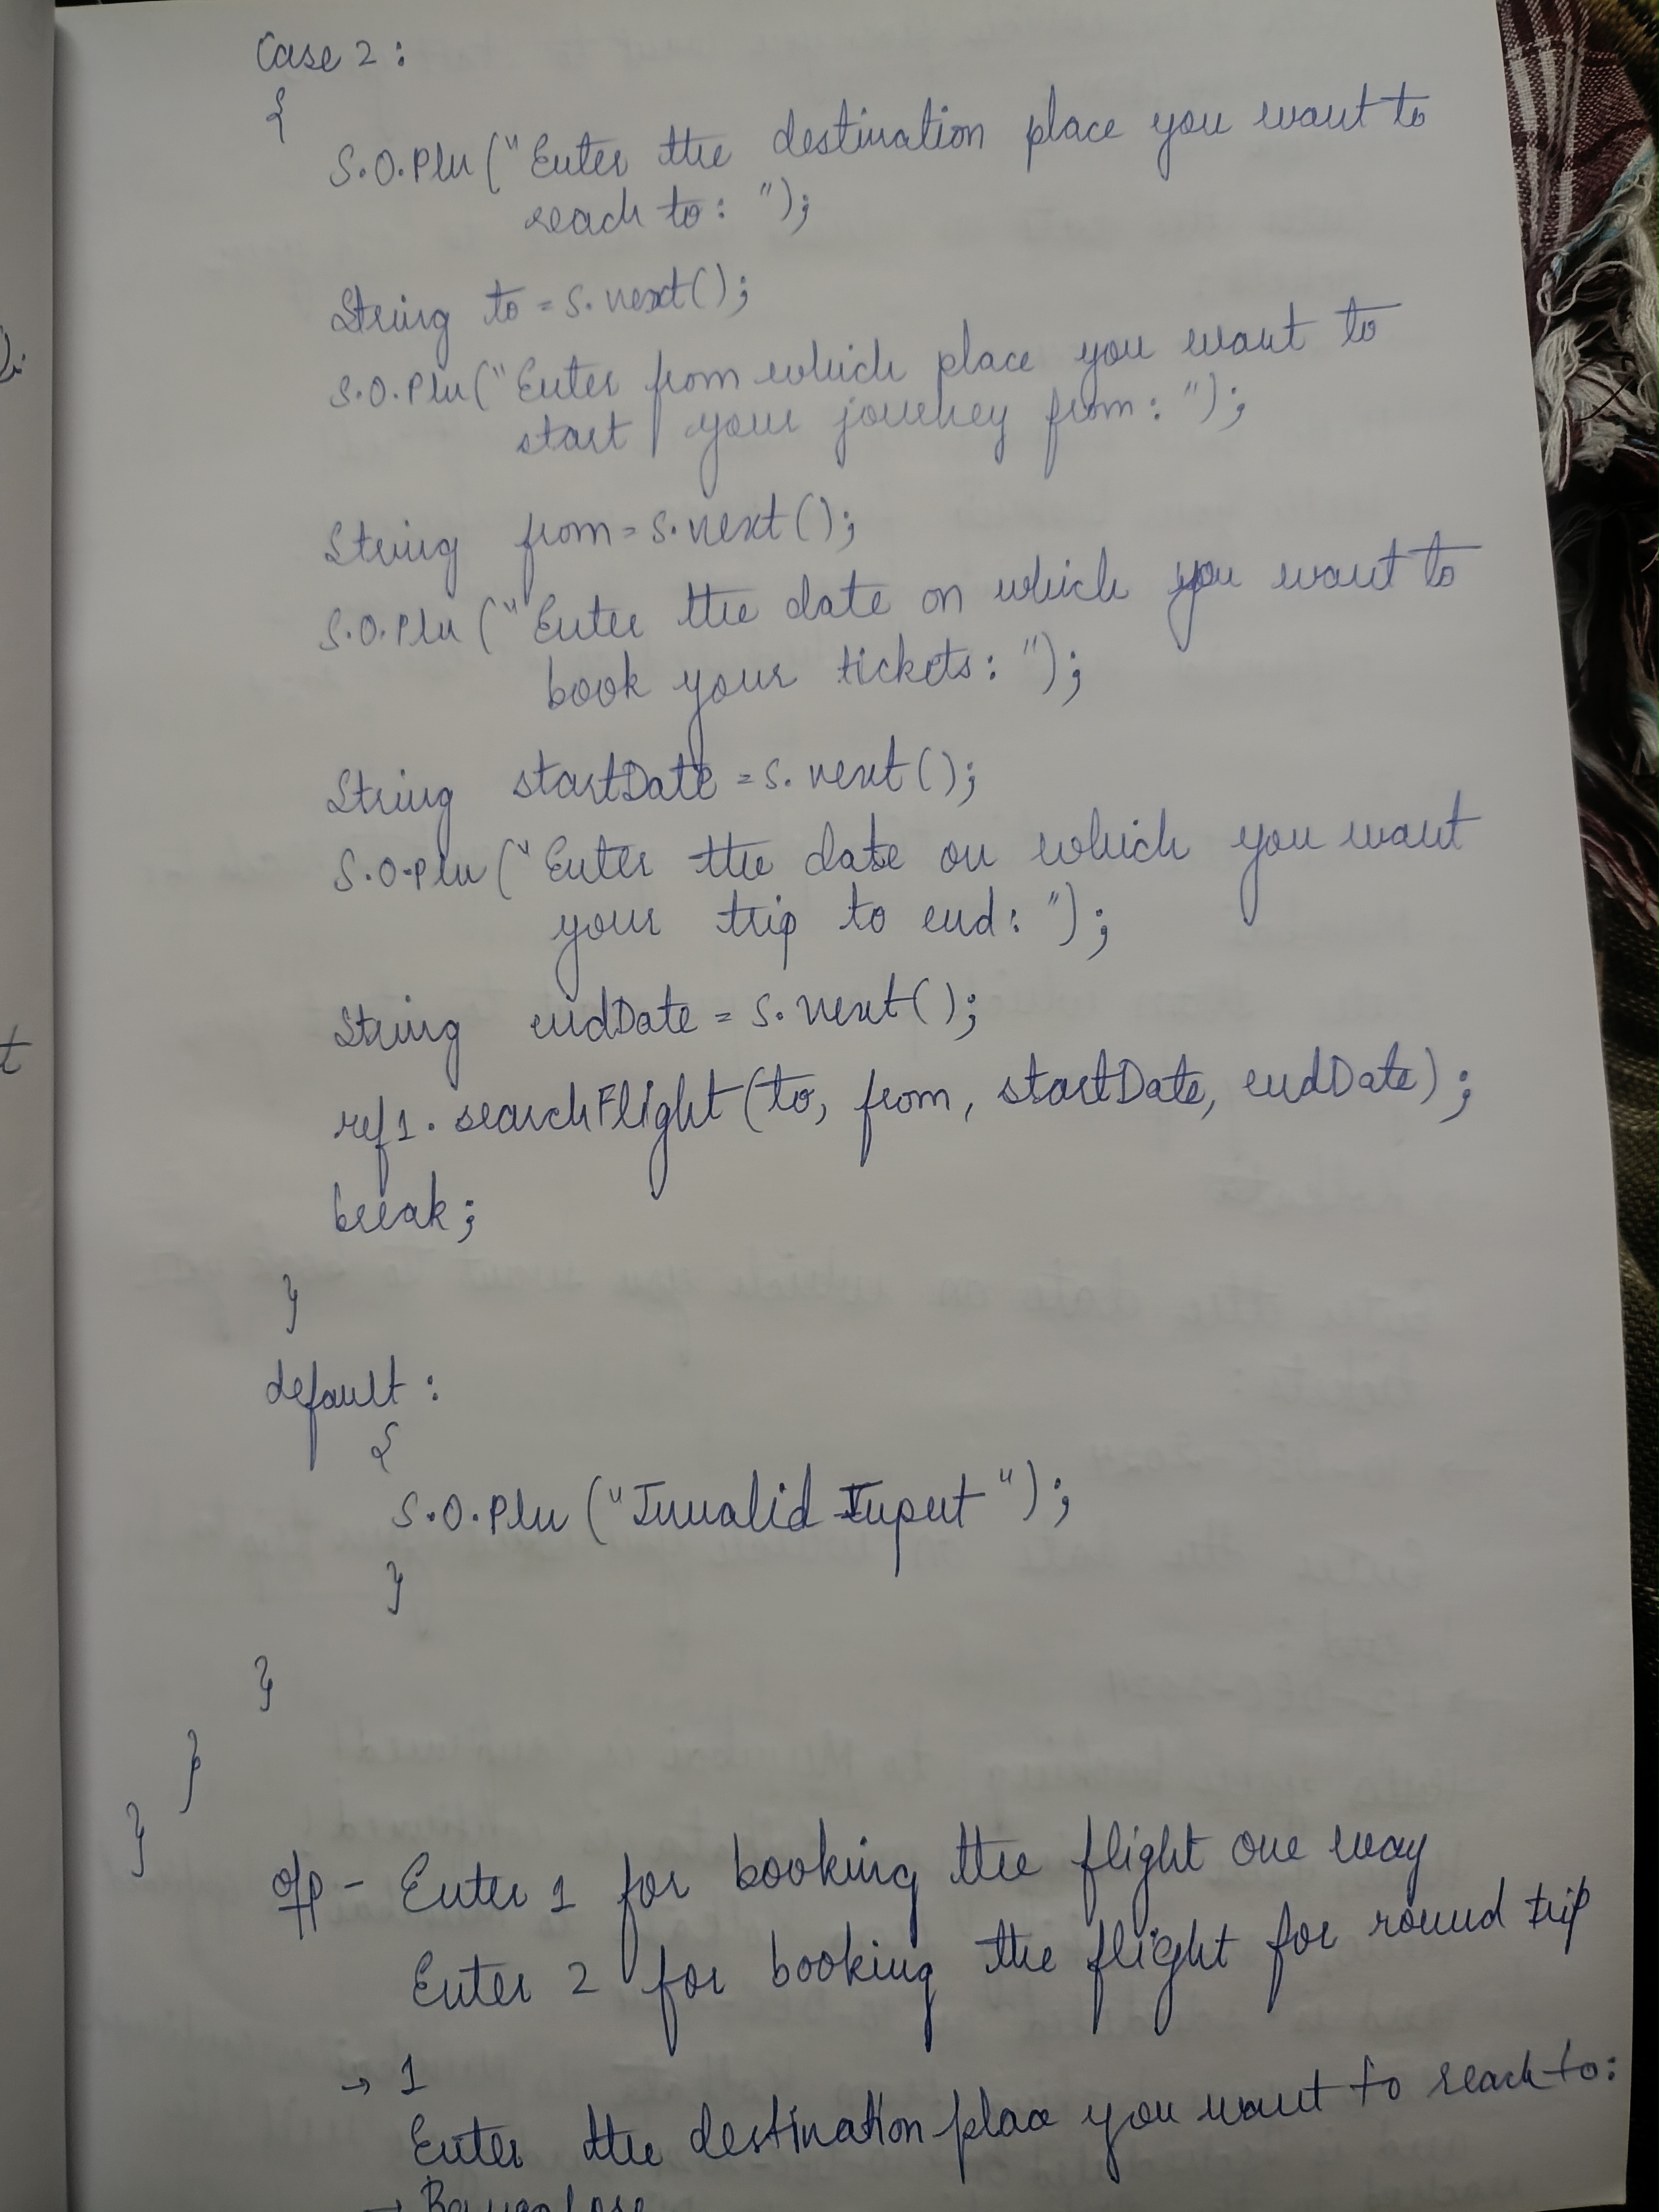 Case 2 :
{
S.O.Pln ("Enter the destination place you want to
reach to : ");
String to = s.next();
S.O.Pln("Enter from which place you want to
start your journey from : ");
String from = s.next();
S.O.Pln ("Enter the date on which you want to
book your tickets : ");
String startDate = s.next();
S.O.Pln ("Enter the date on which you want
your trip to end : ");
String endDate = s.next();
ref1. searchFlight (to, from, startDate, endDate) ;
break ;
}
default :
{
S.O.Pln ("Invalid Input ");
}
}
}
}
o/p - Enter 1 for booking the flight one way
Enter 2 for booking the flight for round trip
→ 1
Enter the destination place you want to reach to :
→ Bangalore